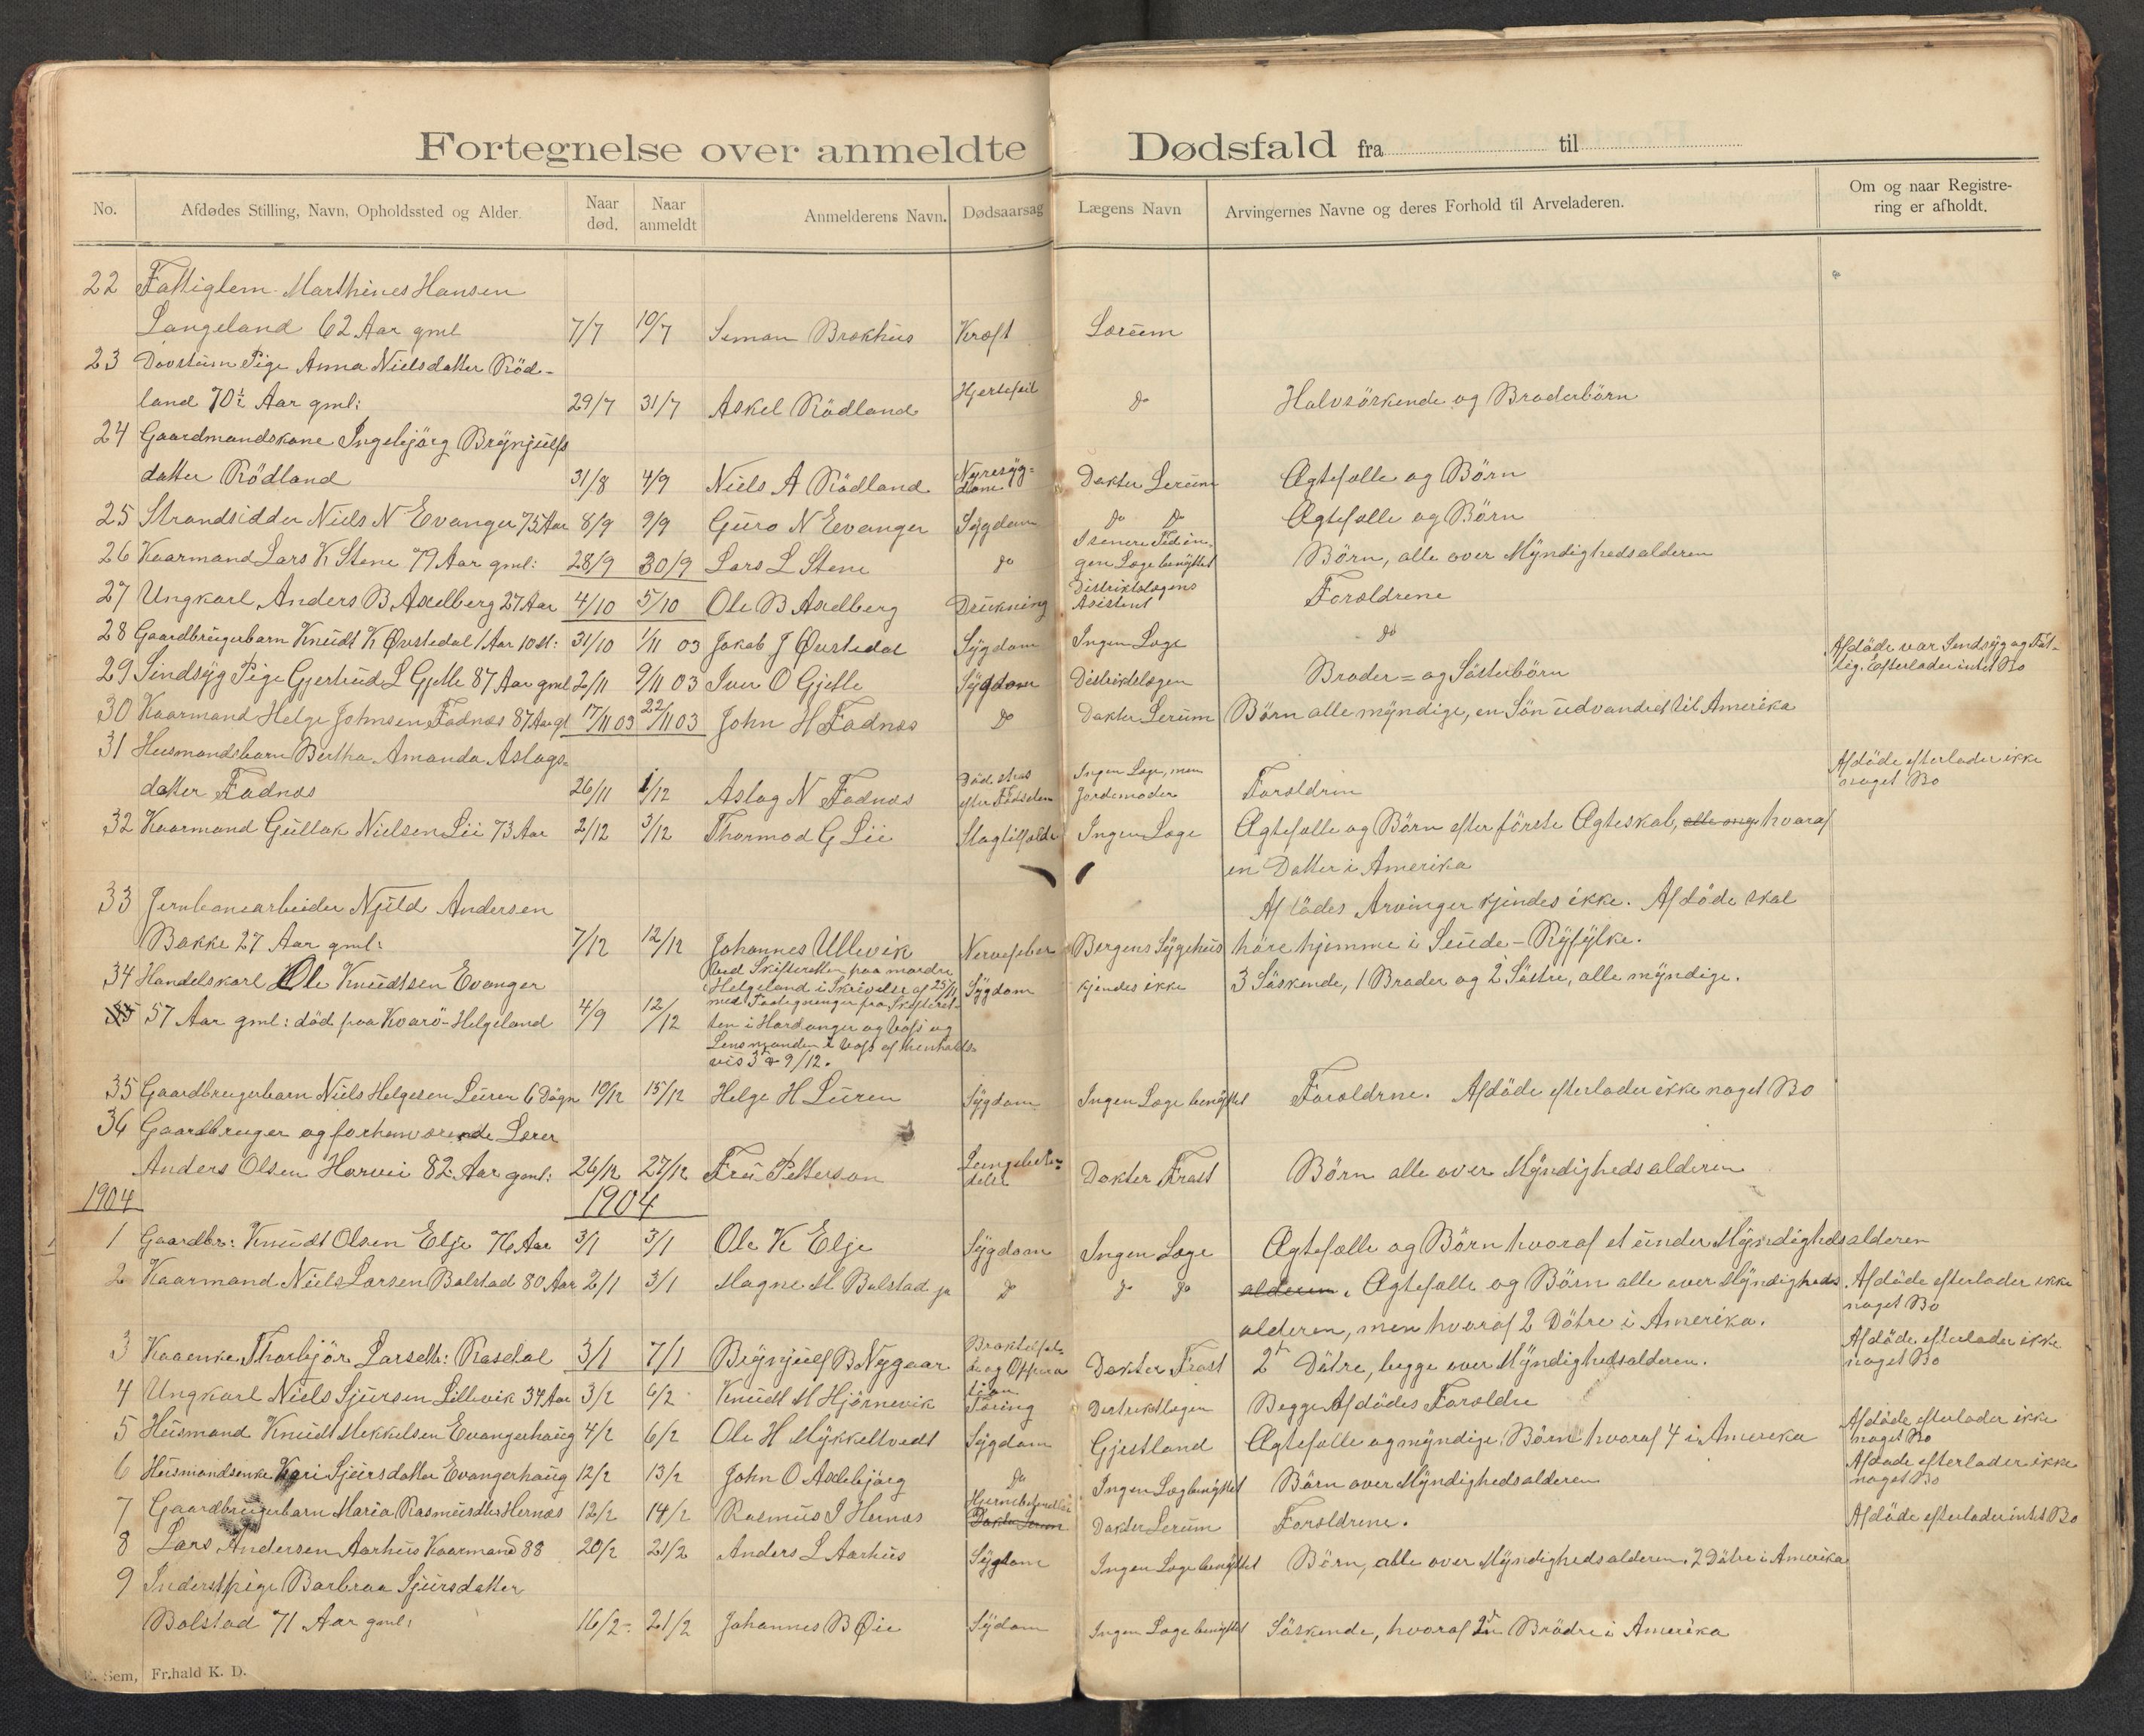 Fortegnelse over anmeldte Dødsfald fra til
No. Afdødes Stilling, Navn, Opholdssted og Alder. Naar død. Naar anmeldt Anmelderens Navn. Dødsaarsag Lægens Navn Arvingernes Navne og deres Forhold til Arveladeren. Om og naar Registrering er afholdt.
22 Fattiglem Marthines Hansen
Langeland 62 Aar gml 7/7 10/7 Simon Brækhus Kræft Lærum
23 Døvstum Pige Anna Nielsdatter Röd-
land 70½ Aar gml: 29/7 31/7 Askel Rödland Hjertefeil do Halvsöskende og Broderbörn
24 Gaardmandskone Ingebjörg Brynjulfs
datter Rödland 31/8 4/9 Niels A Rödland Nyresyg=
dom Dokter Lerum Ægtefælle og Börn
25 Strandsidder Niels N Evanger 75 Aar 8/9 9/9 Guro N Evanger Sygdom do do Ægtefælle og Börn
26 Kaarmand Lars K Stene 79 Aar gml: 28/9 30/9 Lars L Stene do I senere Tid in-
gen Læge benyttet Börn, alle over Myndighedsalderen
27 Ungkarl Anders B Axelberg 27 Aar 4/10 5/10 Ole B Axelberg Drukning Distriktslægens
Asistent Foræld­rene
28 Gaardbrugerbarn Knudt K Øvstedal 1 Aar 10 M: 31/10 1/11 03 Jakob J Øvstedal Sygdom Ingen Læge do
29 Sindsyg Pige Gjertrud L Gjelle 87 Aar gml 2/11 9/11 03 Iver O Gjelle Sygdom Distriktslægen Broder= og Sösterbörn Afdöde var Sindsyg og Fat-
tig. Efterlader intet Bo
30 Kaarmand Helge Johnsen Fadnæs 87 Aar gl 17/11 03 22/11 03 John H Fadnæs do Dokter Lerum Börn alle myndige, en Sön udvandret til Amerika
31 Husmandsbarn Bertha Amanda Aslags-
datter Fadnæs 26/11 1/12 Aslag N Fadnæs Död strax
efter Födselen Ingen Læge, men
Jordemoder Forældrin Afdöde efterlader ikke
noget Bo
32 Kaarmand Gullak Nielsen Lii 73 Aar 2/12 3/12 Thormod G Lii Slagtilfælde Ingen Læge Ægtefælle og Börn efter förste Ægteskab, hvoraf
en Datter i Amerika
33 Jernbanearbeider Njeld Andersen Afdödes Arvinger kjendes ikke. Afdöde skal
Bakke 27 Aar gml: 7/12 12/12 Johannes Ullevik Nervefeber Bergens Sygehus höre hjemme i Suude-Ryfylke.
34 Handelskarl Ole Knudtsen Evanger Ved Skifteretten paa nordre
Helgeland i Skrivelse af 25/11 Sygdom kjendes ikke 3 Söskende, 1 Broder og 2 Söstre, alle myndige.
35 57 Aar gml: död paa Kvarö-Helgeland 4/9 12/12 med Paategninger fra Skifteret-
ten i Hardanger og Voss og
Lensmanden i Voss af henholds-
vis 3 & 9/12.
35 Gaardbrugerbarn Niels Helgesen Luren 6 Dögn 10/12 15/12 Helge H Luren Sygdom Ingen Læge benyttet Forældrne. Afdöde efterlader ikke noget Bo
36 Gaardbruger og forhenværende Lærer
Anders Olsen Horvei 82 Aar gml: 26/12 27/12 Fru Petterson Lungebeten-
delse Dokter Frost Börn alle over Myndighedsalderen
1904 1904
1 Gaardbr: Knudt Olsen Elje 76 Aar 3/1 3/1 Ole K Elje Sygdom Ingen Læge Ægtefælle og Börn hvoraf et under Myndighedsalderen
2 Kaarmand Niels Larsen Bolstad 80 Aar 2/1 3/1 Magne M Bolstad do do do alderen. Ægtefælle og Börn alle over Myndigheds Afdöde efterlader ikke
noget Bo
alderen, men hvoraf 2 Dötre i Amerika.
3 Kaarenke Thorbjör Larsdtt: Rasdal 3/1 7/1 Brynjulf B Nygaar Broktilfæl-
de og Oppera
tion Dokter Frost 2 Dötre, begge over Myndighedsalderen. Afdöde efterlader ikke
noget Bo
4 Ungkarl Niels Sjursen Lillevik 34 Aar 3/2 6/2 Knudt M Hjörnevik Tæring Distriktlægen Begge Afdödes Forældre
5 Husmand Knudt Mekkelsen Evangerhaug 4/2 6/2 Ole H Mykkeltvedt Sygdom Gjestland Ægtefælle og myndige Börn hvoraf 4 i Amerika Afdöde efterlader ikke
noget Bo
6 Husmandsenke Kari Sjursdatter Evangerhaug 12/2 13/2 John O Axlebjörg do Ingen Læg benyttet Börn over Myndighedsalderen Afdöde efterlader ikke
noget Bo
7 Gaardbrugerbarn Maria Rasmusdtr Hernæs 12/2 14/2 Rasmus I Hernæs Dokter Lerum Dokter Lerum Forældrene. Afdöde efterlader intet Bo
8 Lars Andersen Aarhus Kaarmand 88 20/2 21/2 Anders L Aarhus Sygdom Ingen Læge benyttet Börn, alle over Myndighedsalderen. 2 Dötre i Amerika
9 Inderstpige Barbraa Sjursdatter
Bolstad 71 Aar gml: 16/2 21/2 Johannes B Øie Sydom Ingen Læge benyttet Söskende, hvoraf Brödre i Amerika
Sem, Fr.hald K. D.